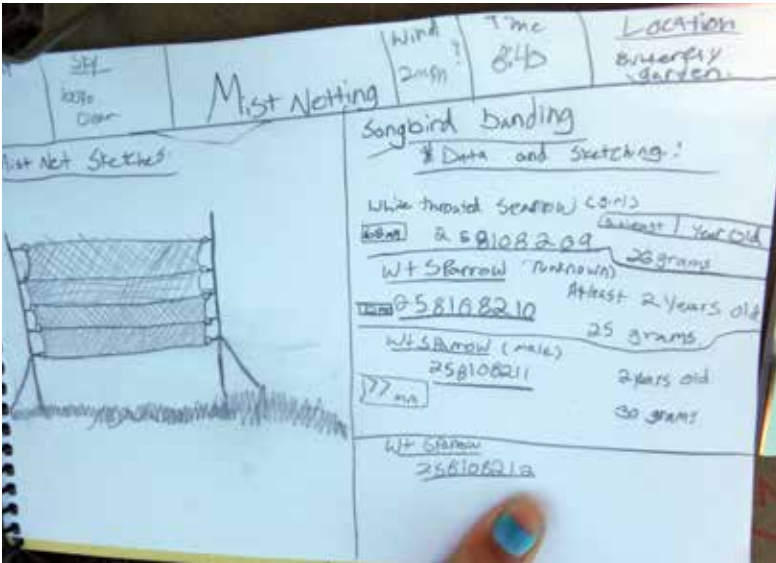 Sky
100%
Clear
Mist Netting
Wind ?
2mph
Time
8:40
Location
Butterfly
garden.
Mist Net Sketches
Songbird banding
* Data and sketching!
White throated Sparrow (girl)
258108209
at least 1 year old
26 grams
Wt Sparrow (unknown)
258108210
At least 2 years old
25 grams
Wt Sparrow (male)
258108211
2 years old
77 mm
30 grams
Wt Sparrow
258108212